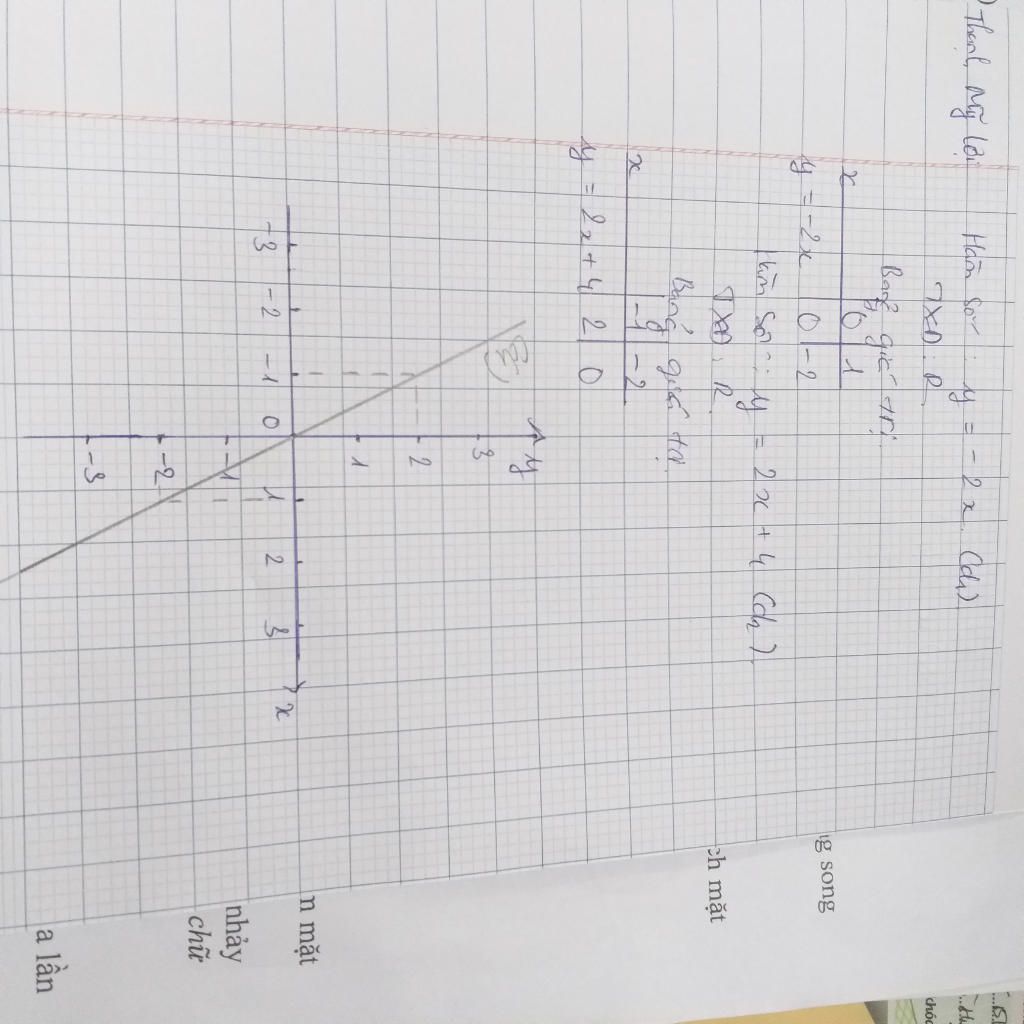 ) Thạnh Mỹ Lợi
Hàm số : y = - 2 x (d₁)
TXĐ : R
Bảng giá trị
x 0 1
y = -2x 0 -2
Hàm số : y = 2x + 4 (d₂)
TXĐ : R
Bảng giá trị
x -1 -2
y = 2x + 4 2 0
y
3
2
1
-3 -2 -1 0 1 2 3 x
-1
-2
-3
ng song
ch mặt
m mặt
nhảy
chữ
a lần